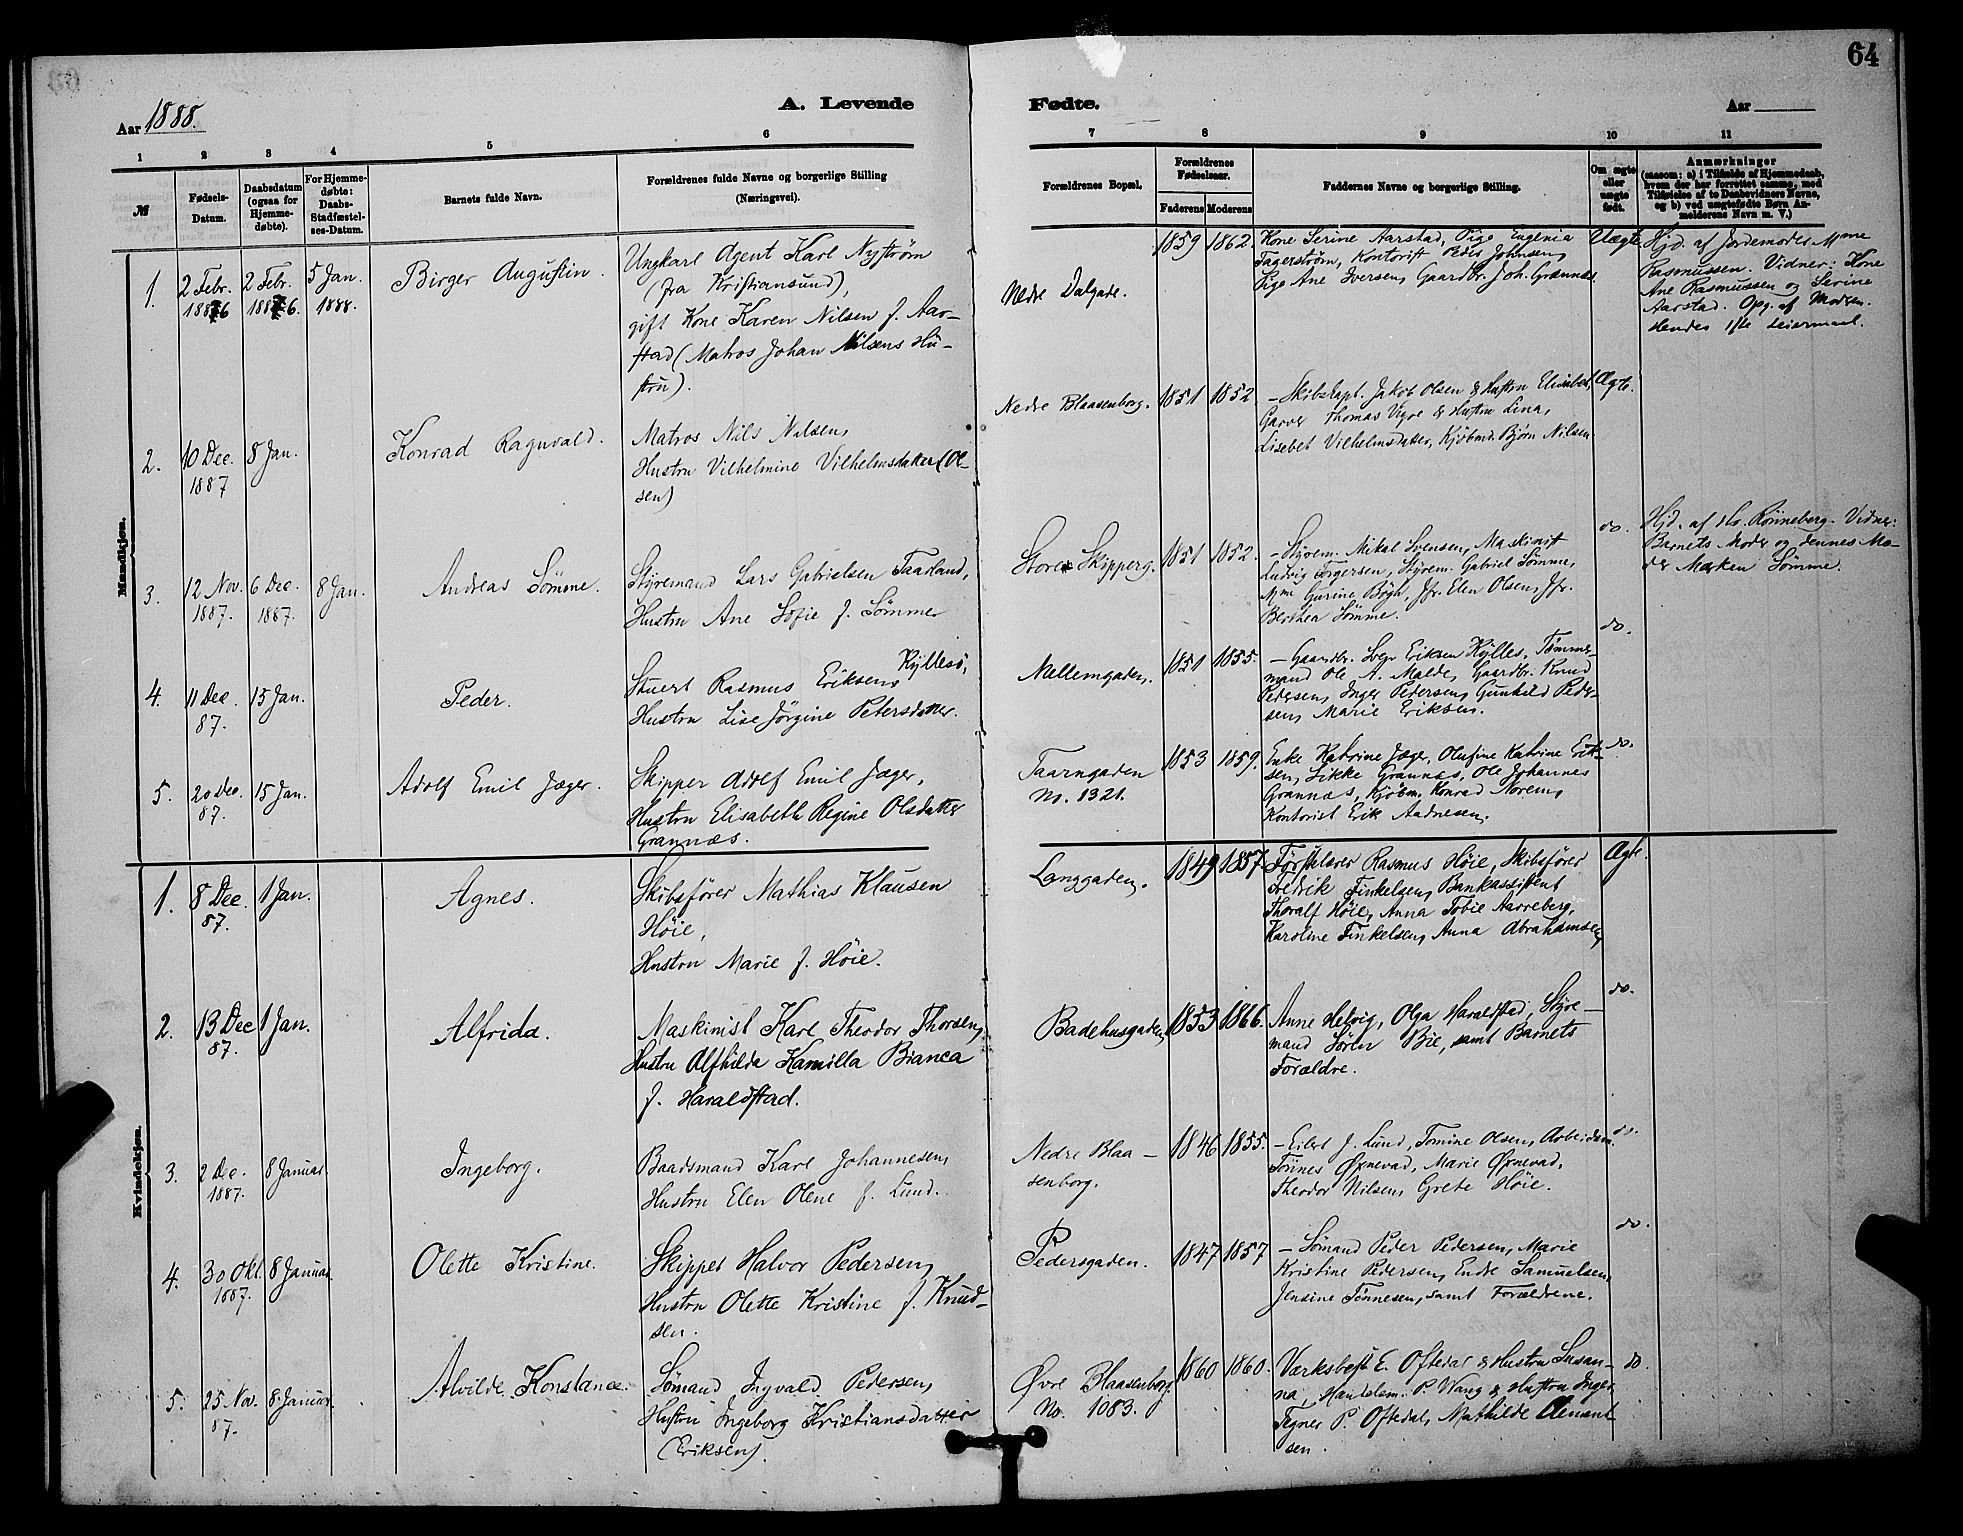 64
Aar 1888.
A. Levende
Fødte.
Aar
1
2
3
4
5
6
7
8
9
10
11
№
Fødsels-
Datum.
Daabsdatum
(ogsaa for
Hjemme-
døbte).
For Hjemme-
døbte:
Daabs-
Stadfæstel-
ses-Datum.
Barnets fulde Navn.
Forældrenes fulde Navne og borgerlige Stilling
(Næringsvei).
Forældrenes Bopæl.
Forældrenes
Fødselsaar.
Faderens
Moderens
Faddernes Navne og borgerlige Stilling.
Om ægte
eller
uægte
født.
Anmærkninger
(saasom: a) i Tilfælde af Hjemmedaab,
hvem der har forrettet samme, med
Tilføielse af to Daabsvidners Navne,
og b) ved uægtefødte Børn An-
melderens Navn m. V.)
Mandkjøn.
1.
2 Febr.
1886
2 Febr.
1886.
5 Jan.
1888.
Birger Augustin.
Ungkarl Agent Karl Nyström
(fra Kristiansund),
gift Kone Karen Nilsen f. Aar-
stad (Matros Johan Nilsens Hu-
stru).
Nedre Dalgade.
1859
1862.
Kone Serine Aarstad, Pige Eugenia
Fagerstrøm, Kontorist Peder Johnsen,
Pige Ane Iversen, Gaardbr. Joh. Grannæs.
Uægte
Hjd. af Jordemoder Mme
Rasmussen. Vidner: Kone
Ane Rasmussen og Serine
Aarstad. Opg. af Modren.
Hendes 1ste Leiermaal.
2.
10 Dec.
1887
8 Jan.
Konrad Ragnvald.
Matros Nils Nilsen,
Hustru Vilhelmine Vilhelmsdatter (Ol-
sen)
Nedre Blaasenborg.
1851
1852
- Skibskapt. Jakob Olsen & Hustru Elisabet,
Garver Thomas Vigre & Hustru Lina,
Lisebet Vilhelmsdatter, Kjøbmd. Bjørn Nilsen.
Ægte.
3.
12 Nov.
1887.
6 Dec.
1887.
8 Jan.
Andreas Sömme.
Styremand Lars Gabrielsen Taarland,
Hustru Ane Sofie f. Sömme
Store Skipperg.
1851
1852.
- Styrem. Mikal Svensen, Maskinist
Ludvig Torgersen, Styrem. Gabriel Sömme,
Mme Gurine Bögh, Jfr. Elen Olsen, Jfr.
Berthea Sömme.
do.
Hjd. af Hr. Rönneberg. Vidner:
Barnets Moder og dennes Mo-
der Marken Sömme.
4.
11 Dec.
87.
15 Jan.
Peder.
Stuert Rasmus Eriksen Kyllesö,
Hustru Lise Jörgine Petersdatter.
Mellemgaden.
1851
1855.
- Gaardbr. Sven Eriksen Kylles, Tømmer-
mand Ole A. Malde, Gaardbr. Knud
Pedersen, Inger Pedersen, Gunhild Peder-
sen, Marie Eriksen.
do.
5.
20 Dec.
87.
15 Jan.
Adolf Emil Jæger.
Skipper Adolf Emil Jæger,
Hustru Elisabeth Regine Olsdatter
Grannæs.
Taarngaden
No. 1321.
1853
1859.
Enke Katrine Jæger, Olufine Katrine Erik-
sen, Sikke Grannæs, Ole Johannes
Grannæs, Kjøbm. Konrad Norem,
Kontorist Erik Aadnesen.
do.
Kvindekjøn.
1.
8 Dec.
87.
1 Jan.
Agnes.
Skibsfører Mathias Klausen
Höie,
Hustru Marie f. Höie.
Langgaden.
1849
1857.
Førstelærer Rasmus Höie, Skibsfører
Fredrik Finkelsen, Bankassistent
Thoralf Höie, Anna Tobie Aarreberg,
Karoline Finkelsen, Anna Abrahamsen,
Ægte.
2.
13 Dec
87.
1 Jan.
Alfrida.
Maskinist Karl Theodor Thorsen,
Hustru Alfhilda Kamilla Bianca
f. Haraldstad.
Badehusgaden
1853
1866.
Anne Hedvig, Olga Haraldstad, Styre-
mand Sören Bie, samt Barnets
Forældre.
do.
3.
2 Dec.
1887.
8 Januar
Ingeborg.
Baadsmand Karl Johannesen,
Hustru Elen Olene f. Lund.
Nedre Blaa-
senborg.
1846
1855.
- Eilert J. Lund, Tomine Olsen, Arbeidsm.
Tönnes Ørnevad, Marie Ørnevad,
Theodor Nilsen, Grete Höie.
do.
4.
30 Okt.
1887.
8 Januar.
Olette Kristine.
Skipper Halvor Pedersen,
Hustru Olette Kristine f. Knud-
sen.
Pedersgaden.
1847
1857
- Sömand Peder Pedersen, Marie
Kristine Pedersen, Endre Samuelsen,
Jensine Tönnesen, samt Forældrene.
do.
5.
25 Nov.
87.
8 Januar.
Alvilde Konstance.
Sömand Ingvald Pedersen,
Hustru Ingeborg Kristiansdatter
(Eriksen).
Øvre Blaasenborg
No. 1083.
1860
1860.
Værksbest. E. Oftedal & Hustru Susan-
na, Handelsm. P. Wang & Hustru Inger
Tegner P. Oftedal, Mathilde Clemmet
sen.
do.